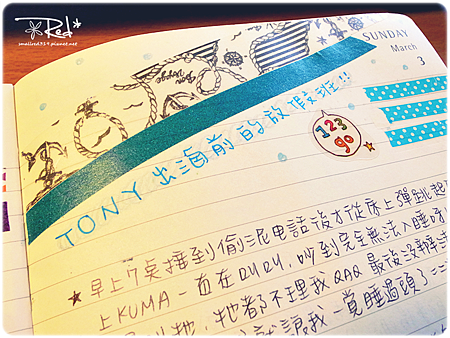 Red
smallred319.pixnet.net
SUNDAY
March
3
TONY出海前的放假班!!
123 go
★早上7點接到偷泥電話後才從床上彈跳起
上KUMA一直在DUDU,吵到完全無法入睡呀
牠,牠都不理我QAQ 最後沒辦法
就讓我一覺睡過頭了